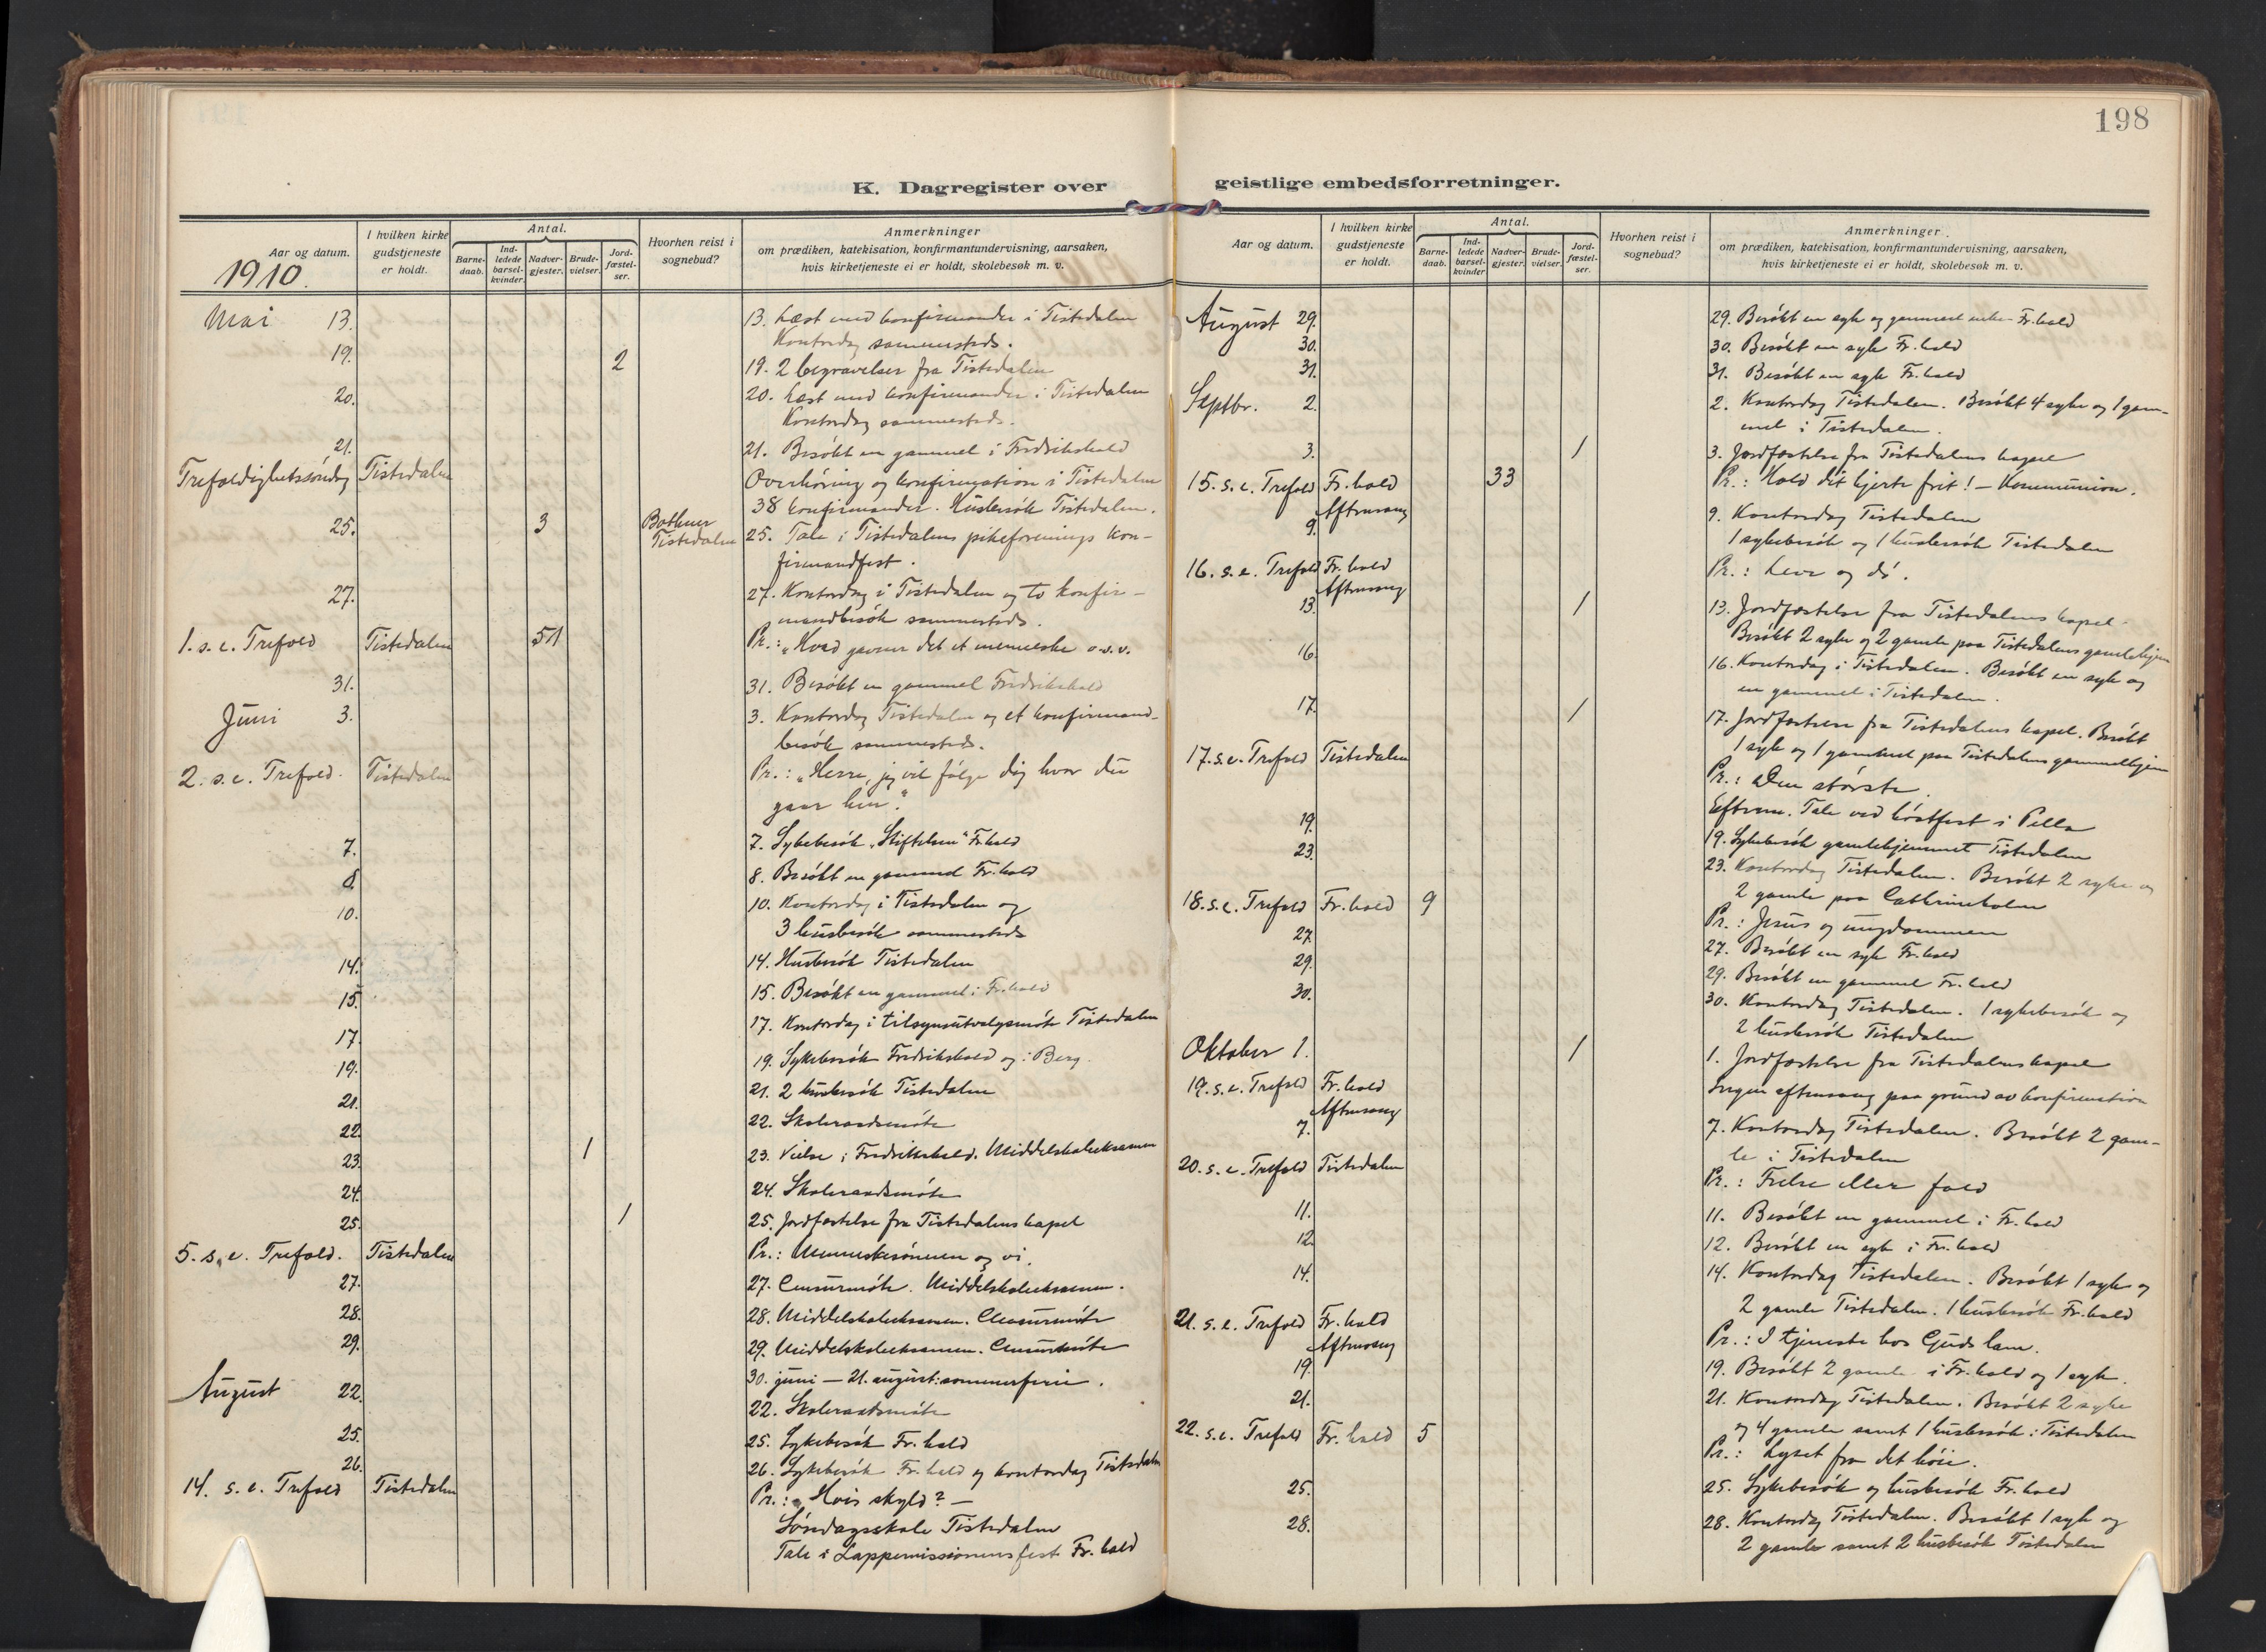 198
K. Dagregister over geistlige embedsforretninger.
Aar og datum.
I hvilken kirke gudstjeneste er holdt.
Antal.
Barnedaab.
Indledede barselkvinder.
Nadvergjester.
Brudevielser.
Jordfæstelser.
Hvorhen reist i sognebud?
Anmerkninger
om prædiken, katekisation, konfirmantundervisning, aarsaken,
hvis kirketjeneste ei er holdt, skolebesøk m. v.
1910.
Mai 13. 13. Læst med konfirmander i Tistedalen
Kontordag sammesteds.
19. 2 19. 2 begravelser fra Tistedalen
20. 20. Læst med konfirmander i Tistedalen
Kontordag sammesteds.
21. 21. Besökt en gammel i Fredrikshald
Trefoldighetssöndag Tistedalen Overhöring og konfirmation i Tistedalen
38 konfirmander. Husbesök Tistedalen.
25. 3 Bothner Tistedalen 25. Tale i Tistedalens pikeforenings kon-
firmandfest.
27. 27. Kontordag i Tistedalen og to konfir-
mandbesök sammesteds.
1. s. e. Trefold Tistedalen 51 Pr.: "Hvad gavner det et menneske o.s.v.
31. 31. Besökt en gammel Fredrikshald
Juni 3. 3. Kontordag Tistedalen og et konfirmand-
besök sammesteds.
2. s. e. Trefold. Tistedalen Pr.: "Herre, jeg vil fölge dig hvor du
gaar hen."
7. 7. Sykebesök "Stiftelsen" Fr.hald
8. 8. Besökt en gammel Fr.hald
10. 10. Kontordag i Tistedalen og
3 husbesök sammesteds
14. 14. Husbesök Tistedalen
15. 15. Besökt en gammel i Fr.hald
17. 17. Kontordag i tilsynsutvalgsmöte Tistedalen
19. 19. Sykebesök Fredrikshald og i Berg.
21. 21. 2 husbesök Tistedalen
22. 22. Skoleraadsmöte
23. 1 23. Vielse i Fredrikshald. Middelskoleeksamen
24. 24. Skoleraadsmöte
25. 1 25. Jordfæstelse fra Tistedalens kapel
5. s. e. Trefold. Tistedalen Pr.: Menneskesönnen og vi.
27. 27. Censurmöte. Middelskoleeksamen.
28. 28. Middelskoleeksamen. Censurmöte
29. 29. Middelskoleeksamen. Censurmöte
30. juni — 21. august: sommerferie.
August 22. 22. Skoleraadsmöte
25. 25. Sykebesök Fr.hald
26. 26. Sykebesök Fr.hald og kontordag Tistedalen
14. s. e. Trefold Tistedalen Pr.: Hvis skyld? —
Söndagsskole Tistedalen
Tale i Lappemissionens fest Fr.hald
Aar og datum.
I hvilken kirke gudstjeneste er holdt.
Antal.
Barnedaab.
Indledede barselkvinder
Nadvergjester.
Brudevielser.
Jordfæstelser.
Hvorhen reist i sognebud?
Anmerkninger.
om prædiken, katekisation, konfirmantundervisning, aarsaken,
hvis kirketjeneste ei er holdt, skolebesøk m. v.
August 29. 29. Besökt en syk og gammel Fr.hald
30. 30. Besökt en syk Fr.hald
31. 31. Besökt en syk Fr.hald
Septbr. 2. 2. Kontordag Tistedalen. Besökt 4 syke og 1 gam-
mel i Tistedalen.
3. 1 3. Jordfæstelse fra Tistedalens kapel
15. s. e. Trefold Fr.hald Aftensang 33 Pr.: Hold dit hjerte frit! — Kommunion.
9. 9. Kontordag Tistedalen
1 sykebesök og 1 husbesök Tistedalen
16. s. e. Trefold Fr.hald Aftensang Pr.: Leve og dö.
13. 1 13. Jordfæstelse fra Tistedalens kapel.
Besökt 2 syke og 2 gamle paa Tistedalens gamlehjem
16. 16. Kontordag i Tistedalen. Besökt en syk og
en gammel i Tistedalen.
17. 1 17. Jordfæstelse fra Tistedalens kapel. Besökt
1 syk og 1 gammel paa Tistedalens gammelhjem
17. s. e. Trefold Tistedalen Pr.: Den störste.
Efterm. Tale ved höstfest i Pella
19. 19. Sykebesök gamlehjemmet Tistedalen
23. 23. Kontordag Tistedalen. Besökt 2 syke og
2 gamle paa Cathrineholm
18. s. e. Trefold Fr.hald 9 Pr.: Jesus og ungdommen
27. 27. Besökt en syk Fr.hald
29. 29. Besökt en gammel Fr.hald
30. 30. Kontordag Tistedalen. 1 sykebesök og
2 husbesök Tistedalen
Oktober 1. 1 1. Jordfæstelse fra Tistedalens kapel
19. s. e. Trefold Fr.hald Aftensang Ingen aftensang paa grund av konfirmation
7. 7. Kontordag Tistedalen. Besökt 2 gam-
le i Tistedalen
20. s. e. Trefold Tistedalen Pr.: Frelse eller fald
11. 11. Besökt en gammel i Fr.hald
12. 12. Besökt en syk i Fr.hald
14. 14. Kontordag Tistedalen. Besökt 1 syk og
2 gamle Tistedalen. 1 husbesök Fr.hald
21. s. e. Trefold Fr.hald Aftensang Pr.: I tjeneste hos Guds lam.
19. 19. Besökt 2 gamle i Fr.hald og 1 syk.
21. 21. Kontordag Tistedalen. Besökt 2 syke
og 4 gamle samt 1 husbesök i Tistedalen
22. s. e. Trefold Fr.hald 5 Pr.: Lyset fra det höie.
25. 25. Sykebesök og husbesök Fr.hald
28. 28. Kontordag Tistedalen. Besökt 1 syk og
2 gamle samt 2 husbesök Tistedalen